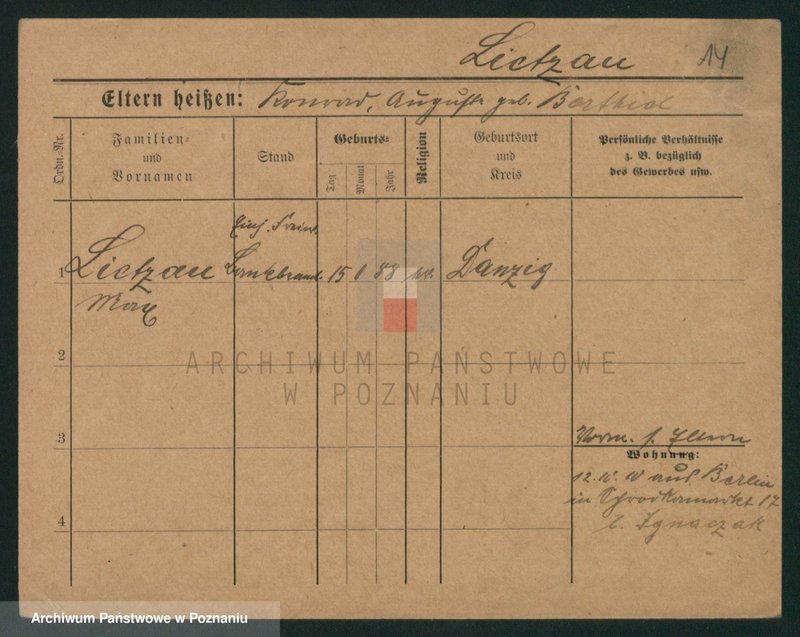 Lietzau 14
Eltern heißen: Konrad, Auguste geb. Barthel
Ordn.-Nr.
Familien-
und
Vornamen
Stand
Geburts-
Tag
Monat
Jahr
Religion
Geburtsort
und
Kreis
Persönliche Verhältnisse
z. B. bezüglich
des Gewerbes usw.
Einj. Freiw.
1 Lietzau 15 88 Danzig
Max
2
ARCHIWUM PAŃSTWOWE
W POZNANIU
3
Wohnung:
aus Berlin
in Schrodkamarkt 17
b. Ignaczak
4
Archiwum Państwowe w Poznaniu